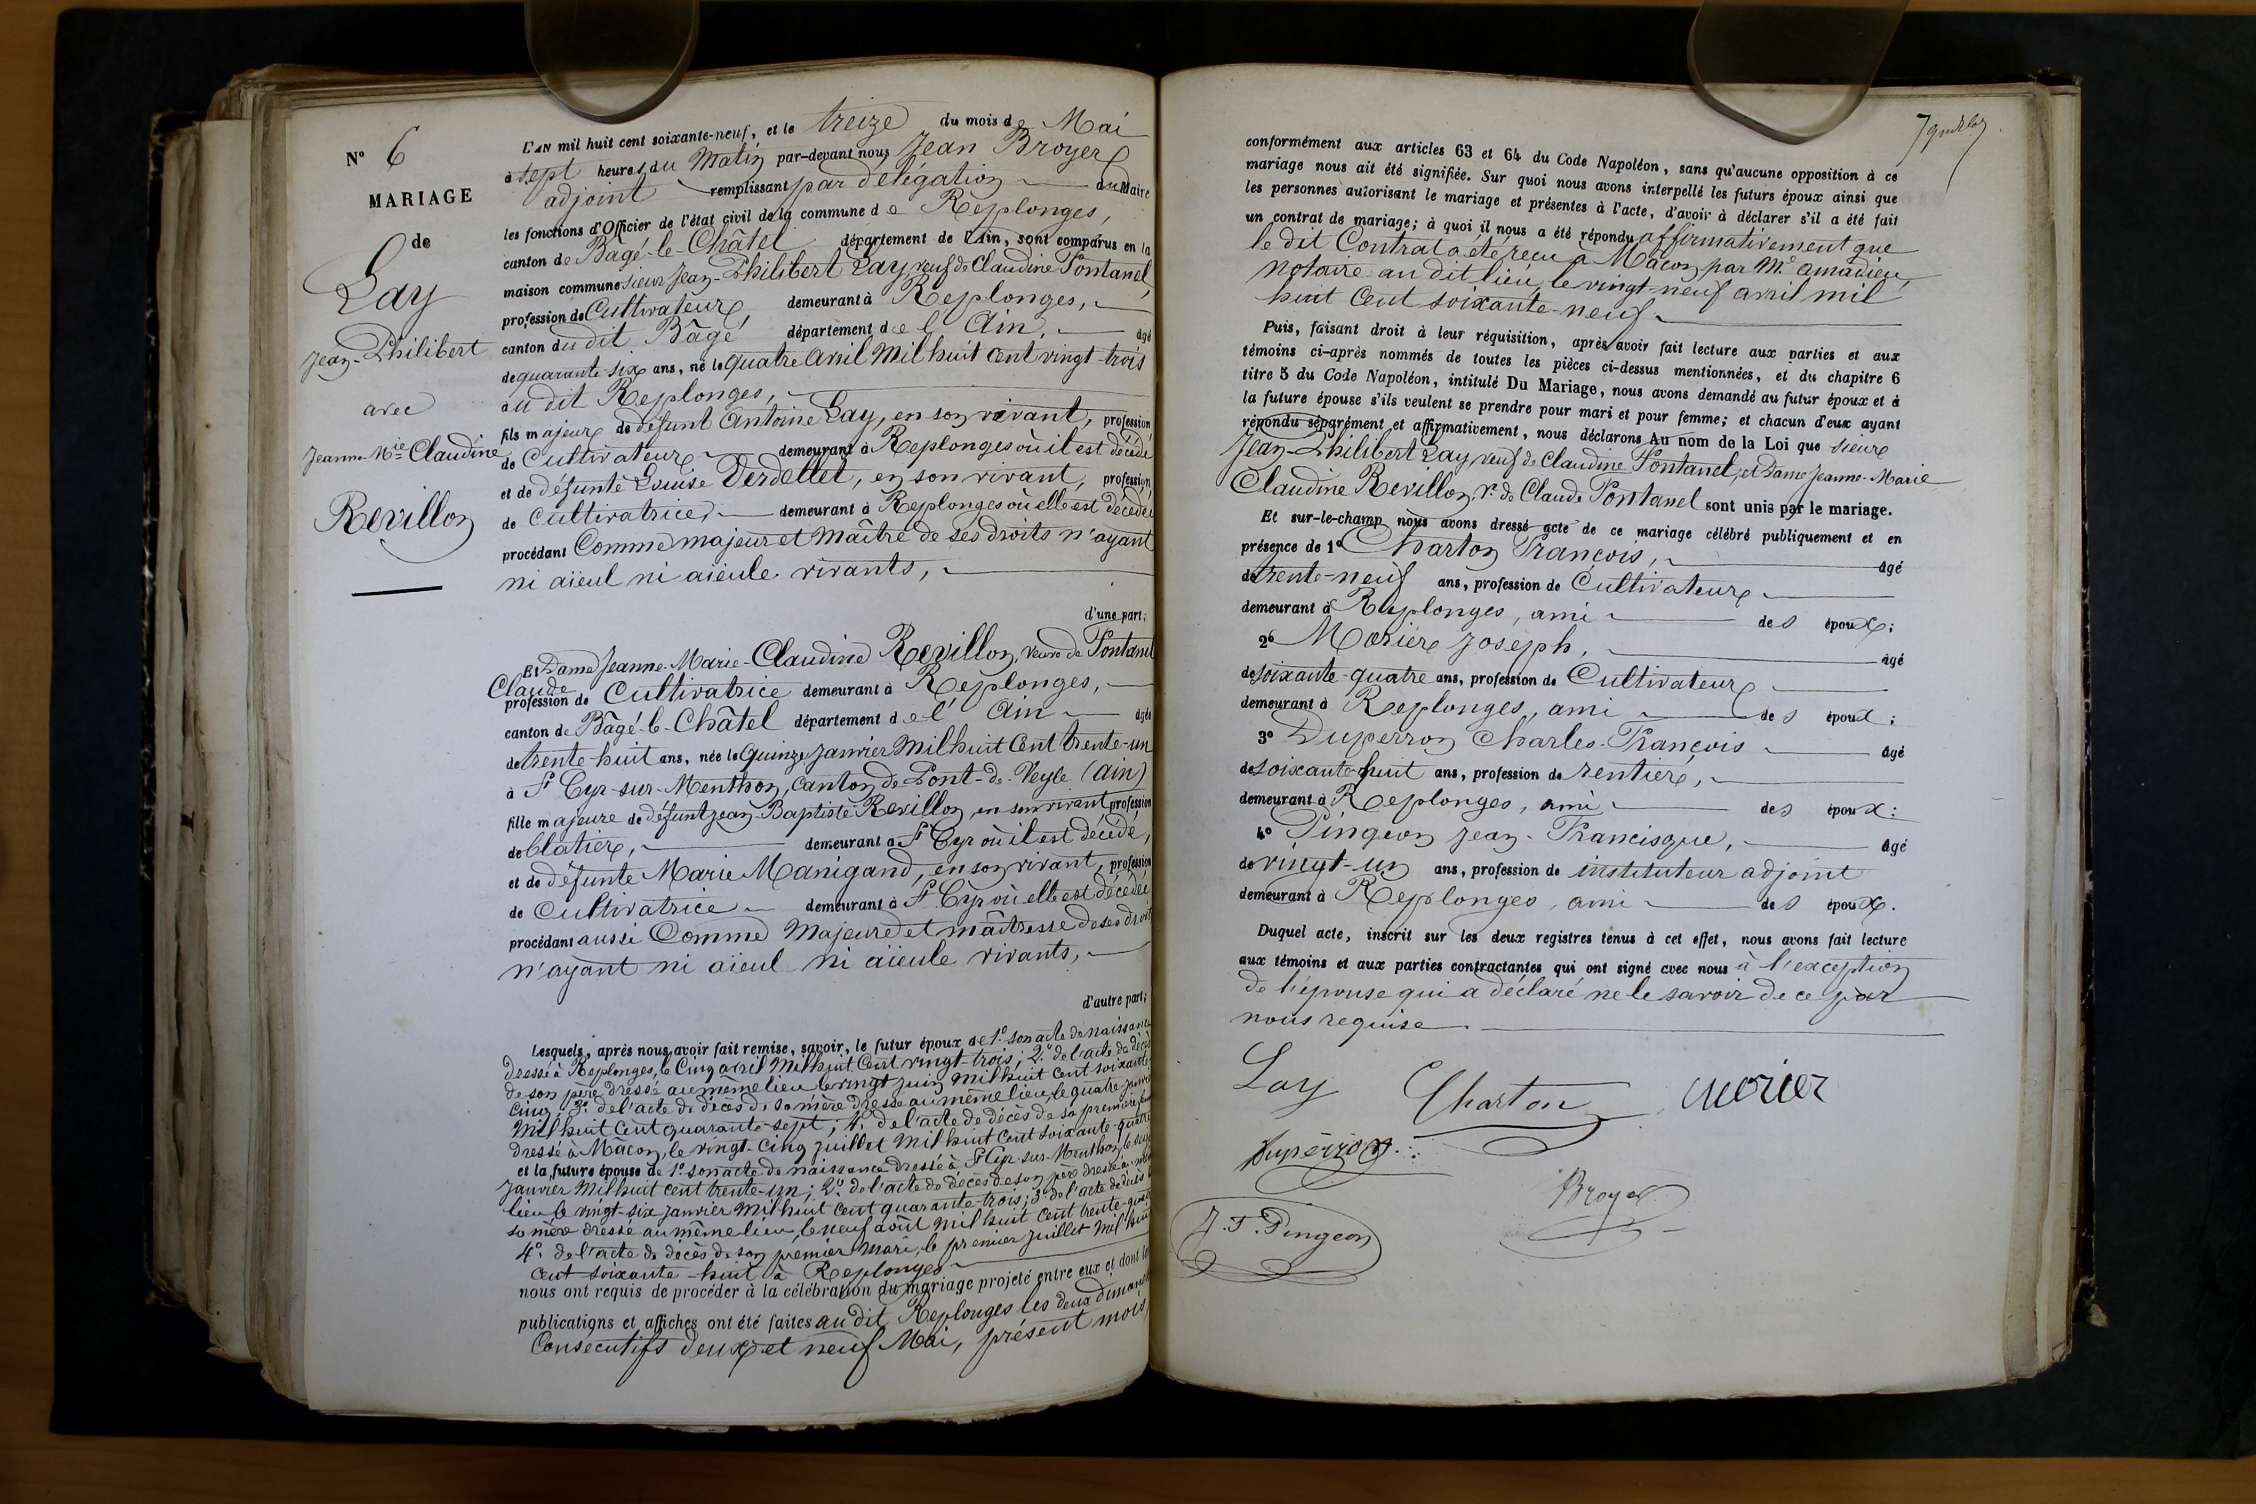 N° 6
MARIAGE
de
Lay
Jean-Philibert
avec
Jeanne-Mie-Claudine
Revillon
L'AN mil huit cent soixante-neuf, et le treize du mois de Mai
à sept heures du Matin par-devant nous Jean Broyer
adjoint remplissant par délégation du Maire
les fonctions d'Officier de l'état civil de la commune de Replonges,
canton de Bâgé-le-Châtel département de l'Ain, sont comparus en la
maison commune sieur Jean-Philibert Lay, veuf de Claudine Pontanel,
profession de Cultivateur, demeurant à Replonges,
canton du dit Bâgé département de l'Ain, âgé
de quarante-six ans, né le quatre avril Mil huit cent vingt-trois
au dit Replonges,
fils majeur de défunt Antoine Lay, en son vivant, profession
de Cultivateur demeurant à Replonges où il est décédé
et de défunte Louise Derdellet, en son vivant, profession
de Cultivatrice, demeurant à Replonges où elle est décédée
procédant Comme majeur et Maître de ses droits n'ayant
ni aïeul ni aïeule vivants,
d'une part;
Et Dame Jeanne-Marie-Claudine Revillon, veuve de Pontanel
Claude
profession de Cultivatrice demeurant à Replonges,
canton de Bâgé-le-Châtel département de l'Ain âgée
de trente-huit ans, née le Quinze Janvier Mil huit Cent trente-un
à St Cyr-sur-Menthon, canton de Pont-de-Veyle (Ain)
fille majeure de défunt Jean-Baptiste Revillon, en son vivant profession
de blatier, demeurant à St Cyr où il est décédé,
et de défunte Marie Manigand, en son vivant, profession
de Cultivatrice demeurant à St Cyr où elle est décédée
procédant aussi Comme Majeure et maîtresse de ses droits
n'ayant ni aïeul ni aïeule vivants,
d'autre part;
Lesquels, après nous avoir fait remise, savoir, le futur époux de 1° son acte de naissance
dressé à Replonges, le Cinq avril Mil huit Cent vingt-trois; 2° de l'acte de décès
de son père dressé au même lieu le vingt Juin Mil huit Cent soixante-
cinq; 3° de l'acte de décès de sa mère dressé au même lieu, le quatre janvier
Mil huit Cent quarante-sept; 4° de l'acte de décès de sa première
dressé à Mâcon, le vingt-cinq Juillet Mil huit Cent soixante-quatre
et la future épouse de 1° son acte de naissance dressé à St Cyr-sur-Menthon, le
Janvier Mil huit cent trente-un; 2° de l'acte de décès de son père dressé au
lieu le vingt-six Janvier Mil huit Cent quarante-trois; 3° de l'acte de décès de
sa mère dressé au même lieu, le neuf août Mil huit Cent trente-quatre
4° de l'acte de décès de son premier mari, le premier Juillet Mil huit
Cent soixante-huit à Replonges
nous ont requis de procéder à la célébration du mariage projeté entre eux et dont les
publications et affiches ont été faites au dit Replonges les deux dimanches
Consécutifs deux et neuf Mai, présent mois,
conformément aux articles 63 et 64 du Code Napoléon, sans qu'aucune opposition à ce
mariage nous ait été signifiée. Sur quoi nous avons interpellé les futurs époux ainsi que
les personnes autorisant le mariage et présentes à l'acte, d'avoir à déclarer s'il a été fait
un contrat de mariage; à quoi il nous a été répondu affirmativement que
le dit Contrat a été reçu à Mâcon par Me Amadieu,
Notaire au dit lieu, le vingt-neuf avril mil
huit Cent soixante-neuf
Puis, faisant droit à leur réquisition, après avoir fait lecture aux parties et aux
témoins ci-après nommés de toutes les pièces ci-dessus mentionnées, et du chapitre 6
titre 5 du Code Napoléon, intitulé Du Mariage, nous avons demandé au futur époux et à
la future épouse s'ils veulent se prendre pour mari et pour femme; et chacun d'eux ayant
répondu séparément et affirmativement, nous déclarons Au nom de la Loi que sieur
Jean-Philibert Lay, veuf de Claudine Pontanel, et Dame Jeanne-Marie
Claudine Revillon, ve de Claude Pontanel sont unis par le mariage.
Et sur-le-champ nous avons dressé acte de ce mariage célébré publiquement et en
présence de 1° Charton François, âgé
de trente-neuf ans, profession de Cultivateur
demeurant à Replonges, ami des époux;
2° Morier Joseph, âgé
de soixante-quatre ans, profession de Cultivateur
demeurant à Replonges, ami des époux;
3° Duperron Charles-François âgé
de soixante-huit ans, profession de rentier,
demeurant à Replonges, ami des époux;
4° Pingeon Jean-Francisque, âgé
de vingt-un ans, profession de instituteur adjoint
demeurant à Replonges, ami des époux.
Duquel acte, inscrit sur les deux registres tenus à cet effet, nous avons fait lecture
aux témoins et aux parties contractantes qui ont signé avec nous à l'exception
de l'épouse qui a déclaré ne le savoir de ce par
nous requise.
Lay Charton Morier
Duperron
Broyer
J. F. Pingeon